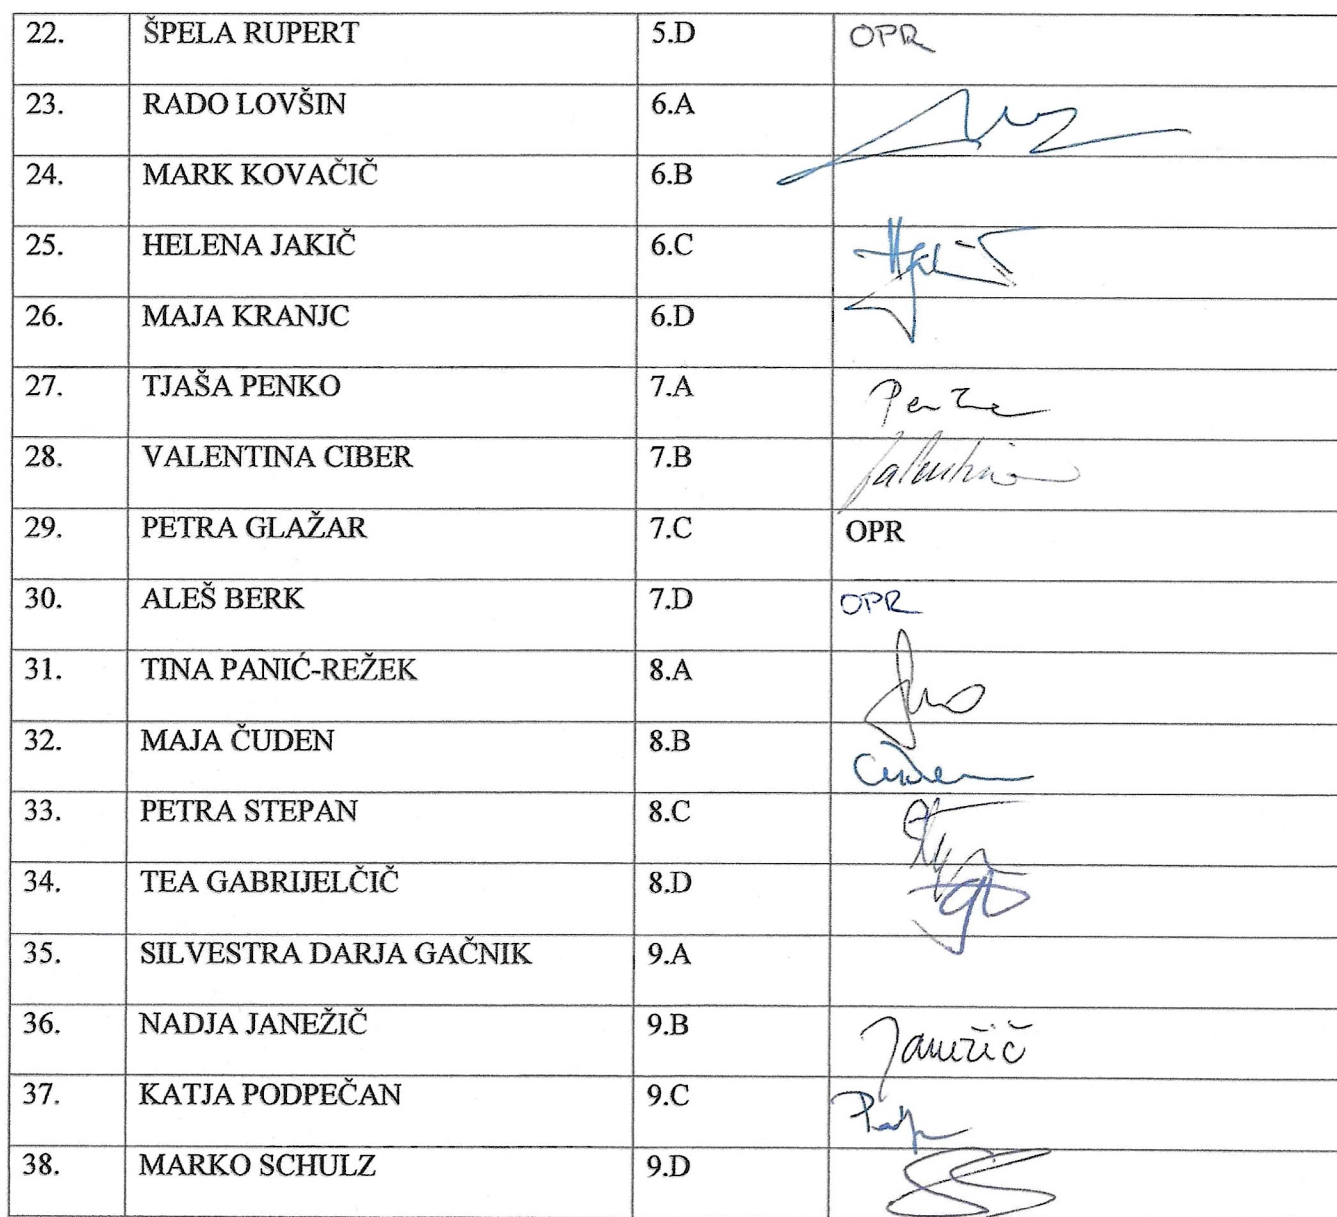 22. ŠPELA RUPERT 5.D OPR
23. RADO LOVŠIN 6.A
24. MARK KOVAČIČ 6.B
25. HELENA JAKIČ 6.C
26. MAJA KRANJC 6.D
27. TJAŠA PENKO 7.A
28. VALENTINA CIBER 7.B Valentina
29. PETRA GLAŽAR 7.C OPR
30. ALEŠ BERK 7.D OPR
31. TINA PANIĆ-REŽEK 8.A
32. MAJA ČUDEN 8.B Čuden
33. PETRA STEPAN 8.C
34. TEA GABRIJELČIČ 8.D
35. SILVESTRA DARJA GAČNIK 9.A
36. NADJA JANEŽIČ 9.B Janežič
37. KATJA PODPEČAN 9.C
38. MARKO SCHULZ 9.D